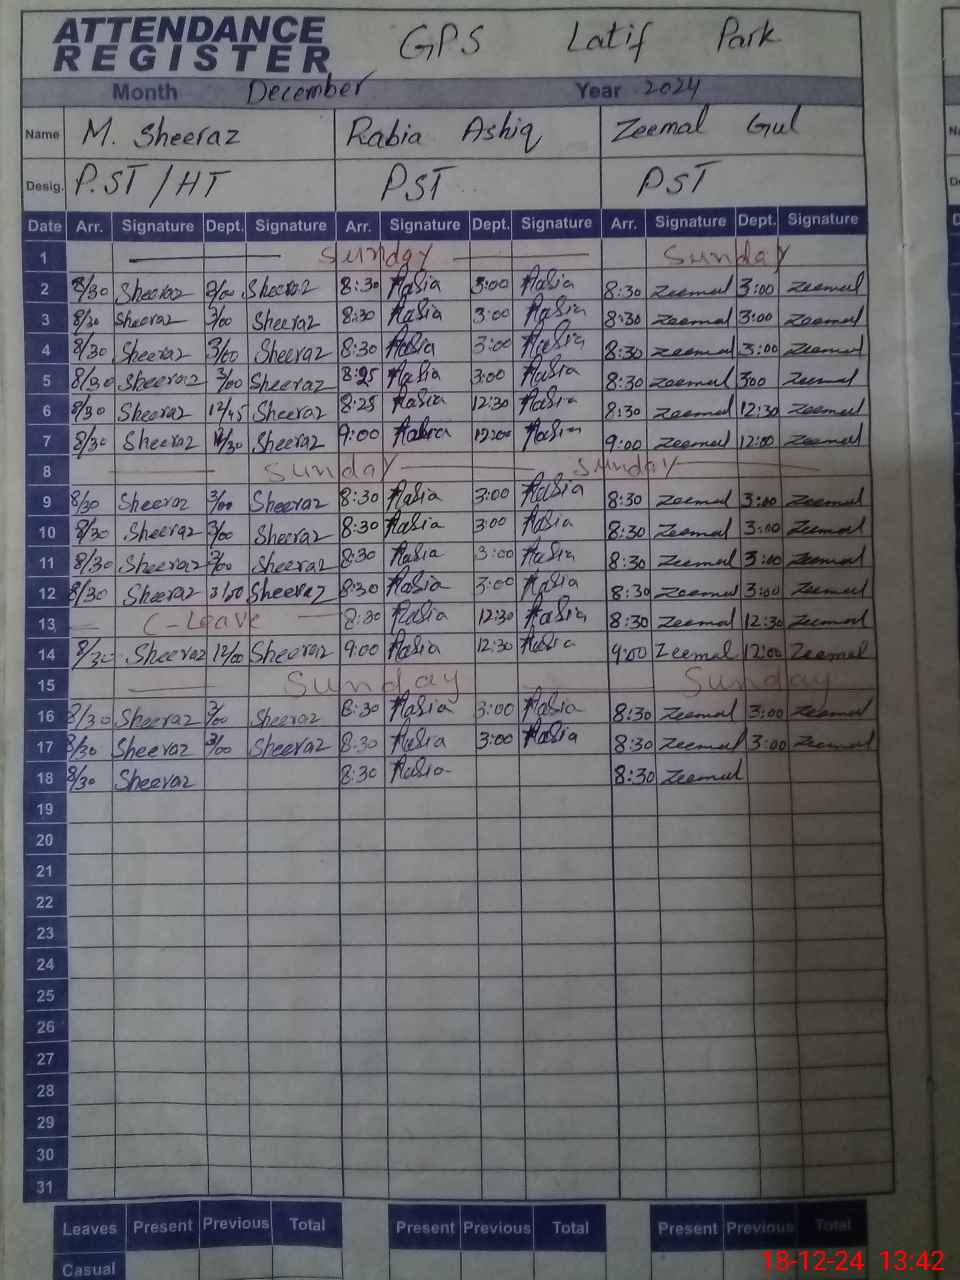 ATTENDANCE REGISTER GPS Latif Park
Month December Year 2024
Name M. Sheeraz Rabia Ashiq Zeemal Gul
Desig. P.ST/HT PST PST
Date Arr. Signature Dept. Signature Arr. Signature Dept. Signature Arr. Signature Dept. Signature
1 Sunday Sunday
2 8/30 Sheeraz 3/00 Sheeraz 8:30 Rabia 3:00 Rabia 8:30 Zeemal 3:00 Zeemal
3 8/30 Sheeraz 3/00 Sheeraz 8:30 Rabia 3:00 Rabia 8:30 Zeemal 3:00 Zeemal
4 8/30 Sheeraz 3/00 Sheeraz 8:30 Rabia 3:00 Rabia 8:30 Zeemal 3:00 Zeemal
5 8/30 Sheeraz 3/00 Sheeraz 8:25 Rabia 3:00 Rabia 8:30 Zeemal 300 Zeemal
6 8/30 Sheeraz 12/45 Sheeraz 8:25 Rabia 12:30 Rabia 8:30 Zeemal 12:30 Zeemal
7 8/30 Sheeraz Sheeraz 9:00 Rabia 12:00 Rabia 9:00 Zeemal 12:00 Zeemal
8 Sunday Sunday
9 8/30 Sheeraz 3/00 Sheeraz 8:30 Rabia 3:00 Rabia 8:30 Zeemal 3:00 Zeemal
10 8/30 Sheeraz 3/00 Sheeraz 8:30 Rabia 3:00 Rabia 8:30 Zeemal 3:00 Zeemal
11 8/30 Sheeraz 3/00 Sheeraz 8:30 Rabia 3:00 Rabia 8:30 Zeemal 3:00 Zeemal
12 8/30 Sheeraz 3/00 Sheeraz 8:30 Rabia 3:00 Rabia 8:30 Zeemal 3:00 Zeemal
13 C-Leave 8:30 Rabia 12:30 Rabia 8:30 Zeemal 12:30 Zeemal
14 8/30 Sheeraz 12/00 Sheeraz 9:00 Rabia 12:30 Rabia 9:00 Zeemal 12:00 Zeemal
15 Sunday Sunday
16 8/30 Sheeraz 3/00 Sheeraz 8:30 Rabia 3:00 Rabia 8:30 Zeemal 3:00 Zeemal
17 8/30 Sheeraz 3/00 Sheeraz 8:30 Rabia 3:00 Rabia 8:30 Zeemal 3:00 Zeemal
18 8/30 Sheeraz 8:30 Rabia 8:30 Zeemal
19
20
21
22
23
24
25
26
27
28
29
30
31
Leaves Present Previous Total Present Previous Total Present Previous Total
Casual
18-12-24 13:42